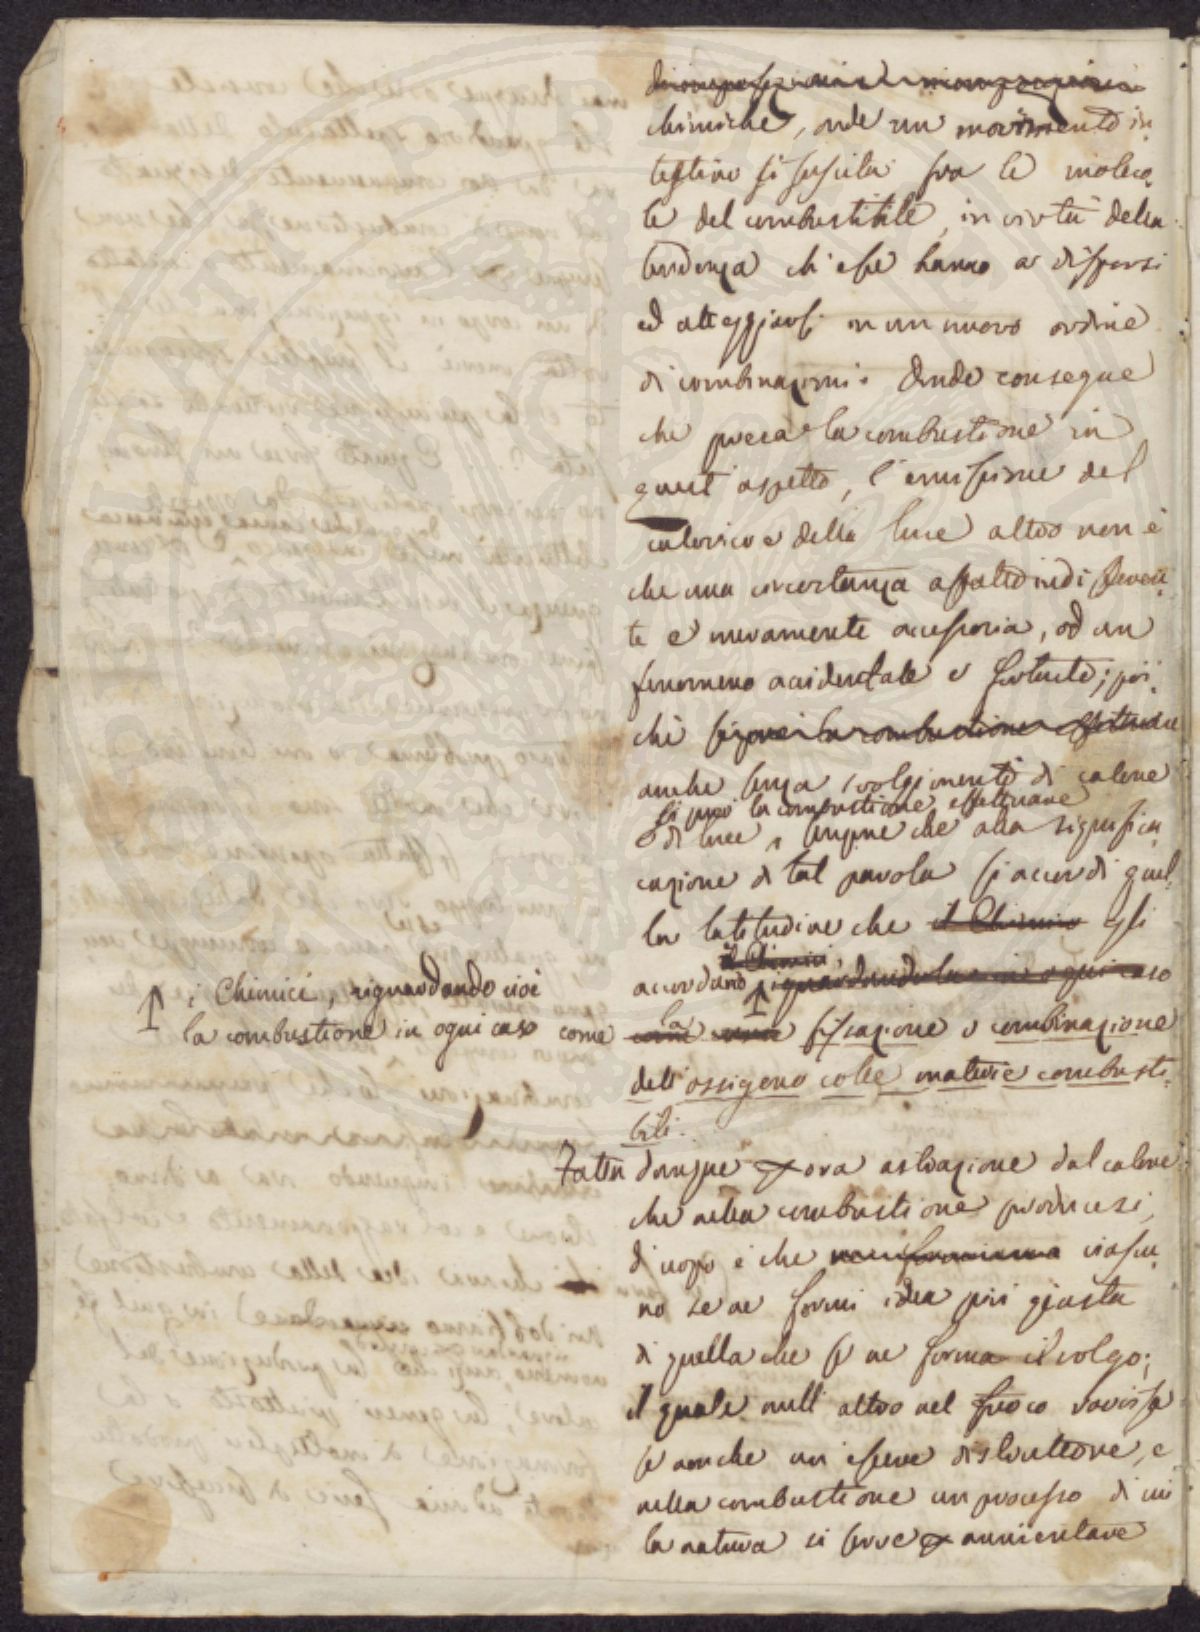 chimiche, onde un movimento in
testino si suscita fra le moleco
le del combustibile, in virtù della
tendenza ch'esse hanno a disporsi
ed atteggiarsi in un nuovo ordine
di combinazioni. Onde consegue
che presa la combustione in
quest'aspetto, l'emissione del
calorico e della luce altro non è
che una circostanza affatto indifferen
te e meramente accessoria, od un
fenomeno accidentale e fortuito; poi
chè si può la combustione effettuare
anche senza svolgimento di calore
si può la combustione effettuare
o di luce, sempre che alla significa
zione di tal parola si accordi quel
la latitudine che il Chimico gli
i Chimici
accordano riguardandola in ogni caso
↑ i Chimici, riguardando cioè
la combustione in ogni caso come
come una la fissazione o combinazione
dell'ossigeno colle materie combusti
bili.
Fatta dunque ora astrazione dal calore
che nella combustione producesi,
d'uopo è che ciascu
no se ne formi idea più giusta
di quella che se ne forma il volgo;
il quale null'altro nel fuoco ravvisa
se anche un essere distruttore, e
nella combustione un processo di cui
la natura si serve per annientare